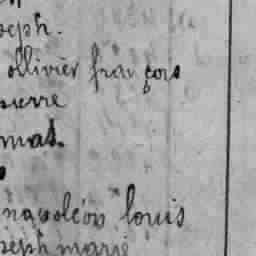 oseph.
ollivier françois
pierre
mat.
napoléon louis
oseph marie